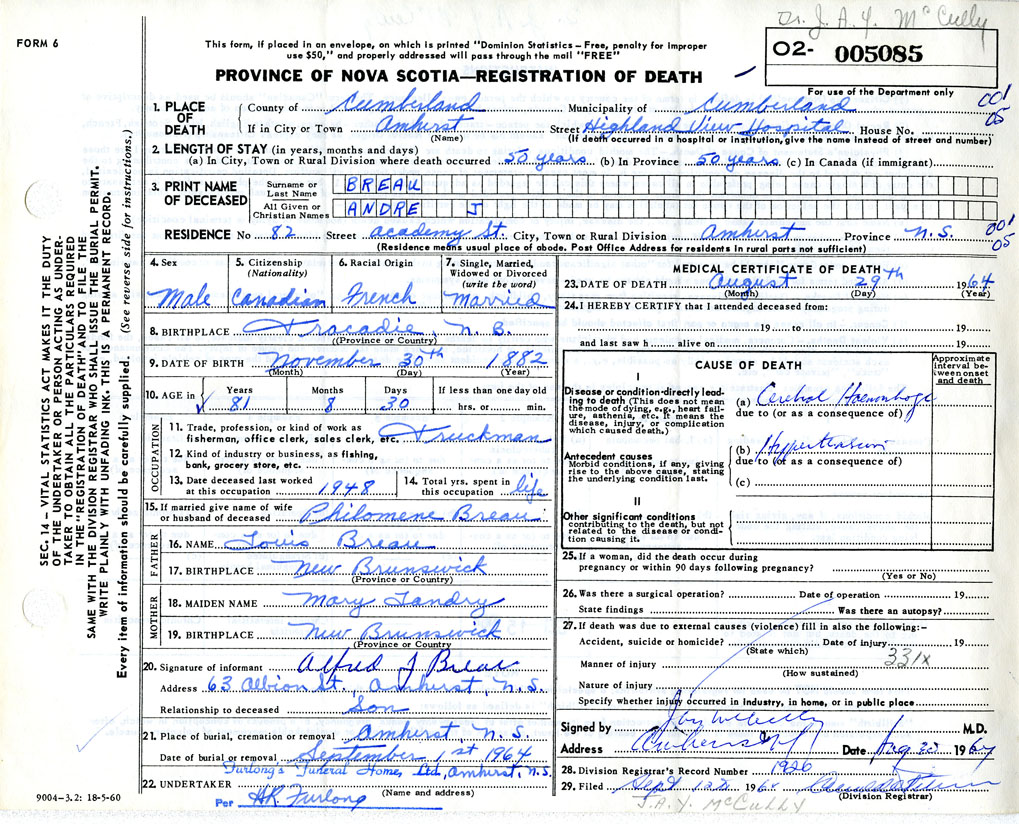 Dr. J. A. Y. McCully
FORM 6
This form, if placed in an envelope, on which is printed "Dominion Statistics – Free, penalty for improper
use $50," and properly addressed will pass through the mail "FREE"
O2- 005085
PROVINCE OF NOVA SCOTIA—REGISTRATION OF DEATH
For use of the Department only
001
05
1. PLACE OF DEATH
County of Cumberland Municipality of Cumberland
If in City or Town Amherst Street Highland View Hospital House No.
(Name) (If death occurred in a hospital or institution, give the name instead of street and number)
2. LENGTH OF STAY (in years, months and days)
(a) In City, Town or Rural Division where death occurred 50 years (b) In Province 50 years (c) In Canada (if immigrant)
3. PRINT NAME OF DECEASED
Surname or Last Name BREAU
All Given or Christian Names ANDRE J
RESIDENCE No 82 Street Academy St. City, Town or Rural Division Amherst Province N.S.
001
05
(Residence means usual place of abode. Post Office Address for residents in rural parts not sufficient)
4. Sex Male
5. Citizenship (Nationality) Canadian
6. Racial Origin French
7. Single, Married, Widowed or Divorced (write the word) Married
8. BIRTHPLACE Tracadie, N.B.
(Province or Country)
9. DATE OF BIRTH November 30th 1882
(Month) (Day) (Year)
10. AGE in Years 81 Months 8 Days 30 If less than one day old hrs. or min.
OCCUPATION
11. Trade, profession, or kind of work as
fisherman, office clerk, sales clerk, etc. Truckman
12. Kind of industry or business, as fishing,
bank, grocery store, etc.
13. Date deceased last worked
at this occupation 1948
14. Total yrs. spent in
this occupation life
15. If married give name of wife
or husband of deceased Philomene Breau
FATHER
16. NAME Louis Breau
17. BIRTHPLACE New Brunswick
(Province or Country)
MOTHER
18. MAIDEN NAME Mary Landry
19. BIRTHPLACE New Brunswick
(Province or Country)
20. Signature of informant Alfred J Breau
Address 63 Albion St., Amherst, N.S.
Relationship to deceased Son
21. Place of burial, cremation or removal Amherst N.S.
Date of burial or removal September 1st 1964
Furlong's Funeral Home, Ltd, Amherst, N.S.
22. UNDERTAKER (Name and address)
Per HR Furlong
9004—3.2: 18-5-60
MEDICAL CERTIFICATE OF DEATH
23. DATE OF DEATH August 29th 1964
(Month) (Day) (Year)
24. I HEREBY CERTIFY that I attended deceased from:
19 to 19
and last saw h alive on 19
CAUSE OF DEATH
Approximate interval between onset and death
I
Disease or condition directly leading to death (This does not mean
the mode of dying, e.g., heart failure, asthenia, etc. It means the
disease, injury, or complication
which caused death.)
(a) Cerebral Haemorrhage
due to (or as a consequence of)
Antecedent causes
Morbid conditions, if any, giving
rise to the above cause, stating
the underlying condition last.
(b) Hypertension
due to (or as a consequence of)
(c)
II
Other significant conditions
contributing to the death, but not
related to the disease or condition causing it.
25. If a woman, did the death occur during
pregnancy or within 90 days following pregnancy?
(Yes or No)
26. Was there a surgical operation? Date of operation 19
State findings Was there an autopsy?
27. If death was due to external causes (violence) fill in also the following:—
Accident, suicide or homicide? Date of injury 19
(State which)
331x
Manner of injury
(How sustained)
Nature of injury
Specify whether injury occurred in Industry, in home, or in public place
Signed by M.D.
Address Date 1964
28. Division Registrar's Record Number 1926
29. Filed Sept 1964
(Division Registrar)
J.A.Y. McCULLY
SEC. 14 — VITAL STATISTICS ACT MAKES IT THE DUTY
OF THE UNDERTAKER OR PERSON ACTING AS UNDER-
TAKER TO OBTAIN ALL THE PARTICULARS REQUIRED
IN THE "REGISTRATION OF DEATH" AND TO FILE THE
SAME WITH THE DIVISION REGISTRAR WHO SHALL ISSUE THE BURIAL PERMIT.
WRITE PLAINLY WITH UNFADING INK. THIS IS A PERMANENT RECORD.
Every item of information should be carefully supplied. (See reverse side for instructions.)